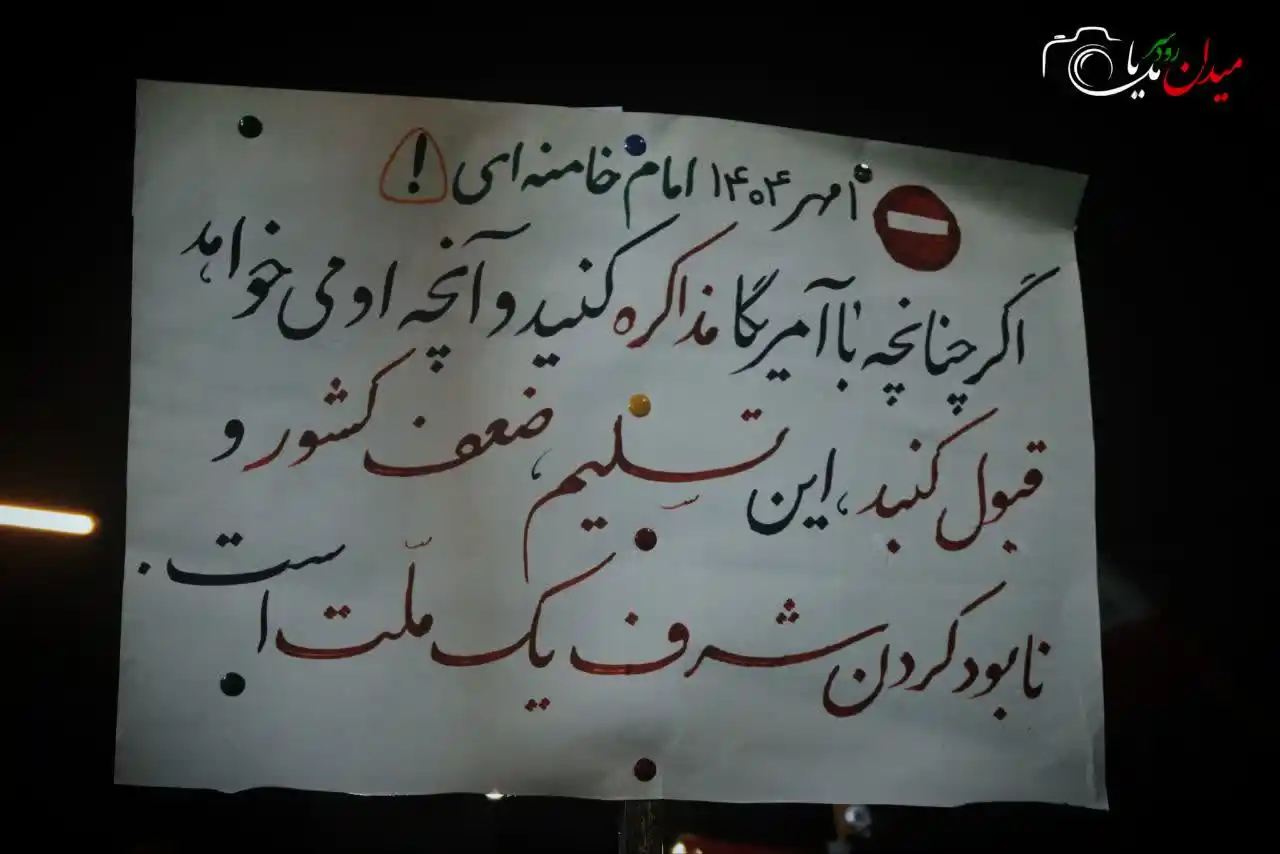 میدان رودسر مدیا
۱ مهر ۱۴۰۴ امام خامنه ای !
اگر چنانچه با آمریکا مذاکره کنید و آنچه او می خواهد
قبول کنید، این تسلیم، ضعف کشور و
نابود کردن شرف یک ملّت است.